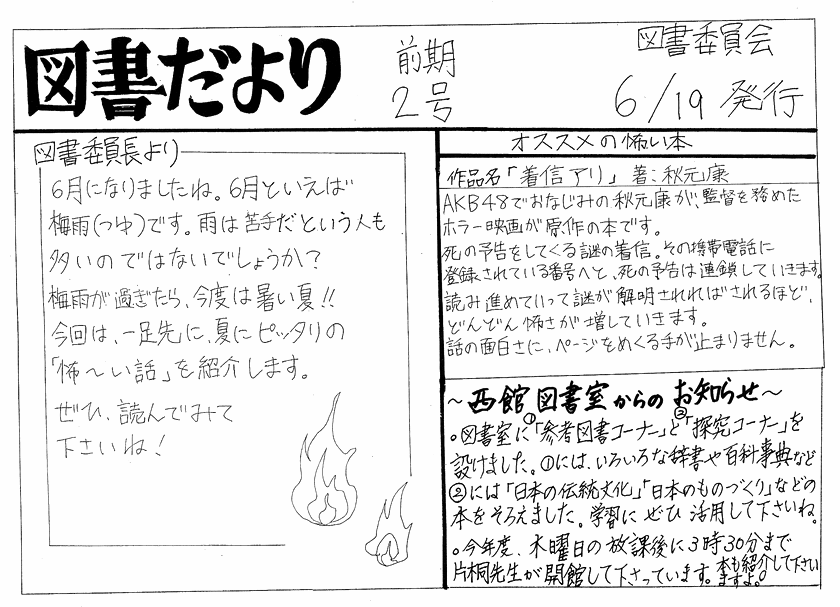 図書だより
前期
2号
図書委員会
6/19 発行
図書委員長より
6月になりましたね。6月といえば
梅雨(つゆ)です。雨は苦手だという人も
多いのではないでしょうか?
梅雨が過ぎたら、今度は暑い夏!!
今回は、一足先に、夏にピッタリの
「怖〜い話」を紹介します。
ぜひ、読んでみて
下さいね!
オススメの怖い本
作品名「着信アリ」 著:秋元康
AKB48でおなじみの秋元康が、監督を務めた
ホラー映画が原作の本です。
死の予告をしてくる謎の着信。その携帯電話に
登録されている番号へと、死の予告は連鎖していきます。
読み進めていって謎が解明されればされるほど、
どんどん怖さが増していきます。
話の面白さに、ページをめくる手が止まりません。
〜西館図書室からのお知らせ〜
。図書室に①「参考図書コーナー」と②「探究コーナー」を
設けました。①には、いろいろな辞書や百科事典など
②には「日本の伝統文化」「日本のものづくり」などの
本をそろえました。学習に ぜひ 活用して下さいね。
。今年度、木曜日の放課後に3時30分まで
片桐先生が開館して下さっています。本も紹介して下さい
ますよ。